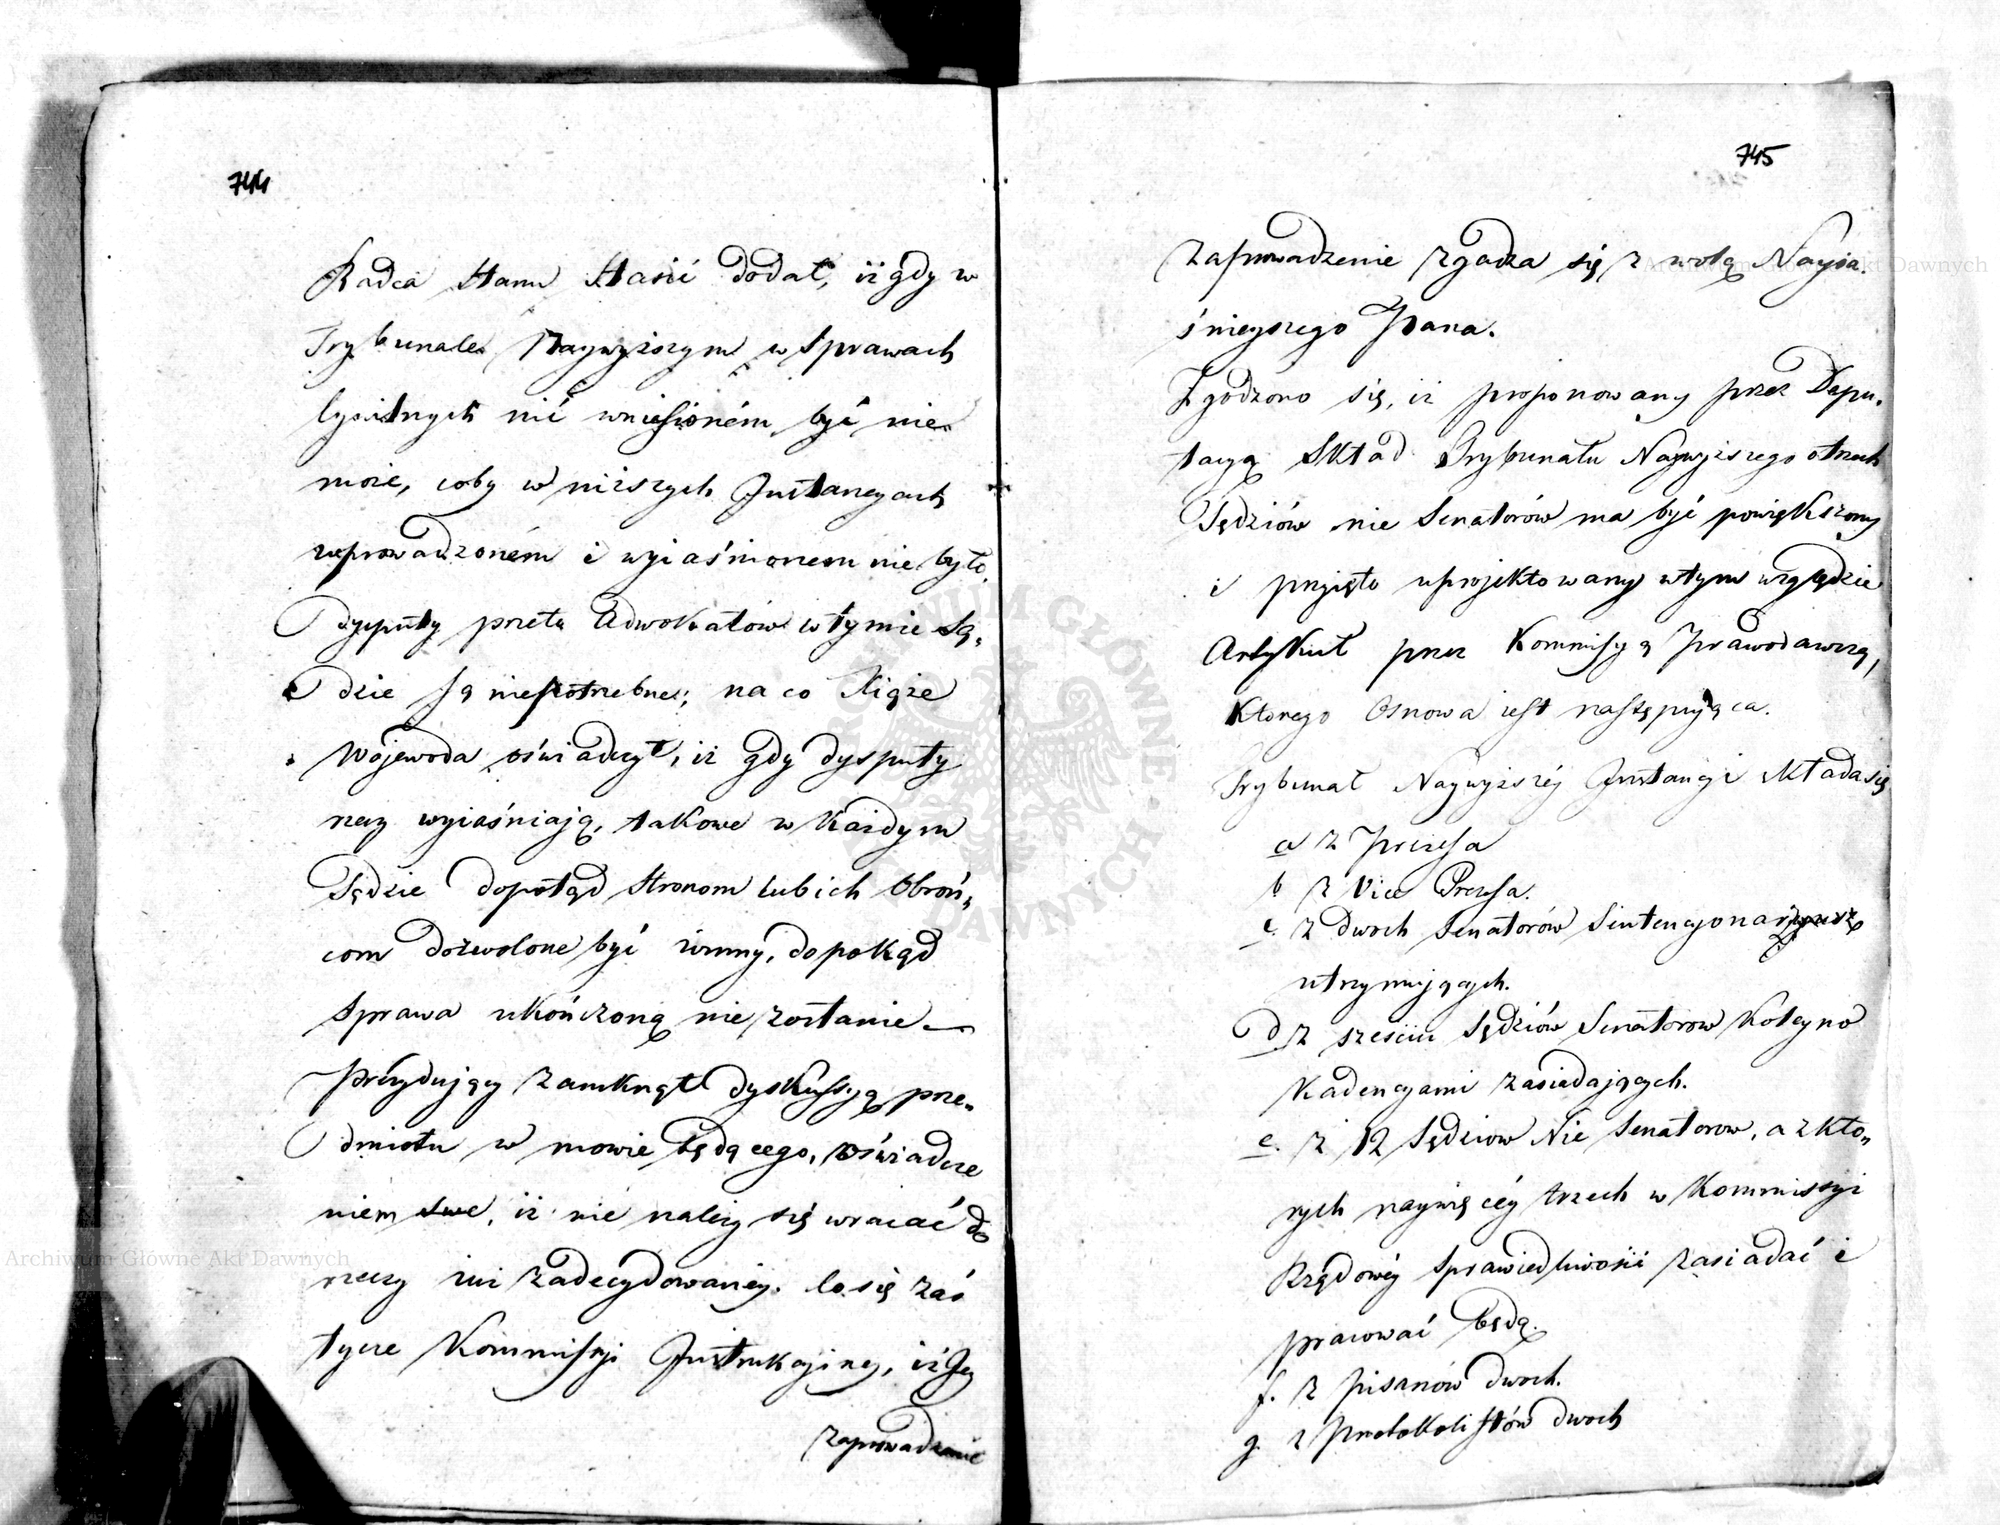 744
Radca Stanu Stasić dodał, iż gdy w
Trybunale Naywyższym w Sprawach
Cywilnych nic wniesioném być nie
może, coby w niższych Instancyach
wprowadzoném i wyiaśnionem nie było,
dysputy przeto Adwokatów w tymże Są„
dzie są niepotrzebne; na co Xiąże
Wojewoda oświadczył, iż gdy dysputy
rzecz wyiaśniają, takowe w każdym
Sądzie dopotąd Stronom lub ich Obroń„
com dozwolone być winny, dopokąd
Sprawa ukończoną nie zostanie —
Prezydujący zamknął dyskussyą prze„
dmiotu w mowie będącego, oświadcze
niem swe, iż nie należy się wracać do
rzeczy iuż zadecydowanéy. Co się zaś
tycze Kommissyi Instrukcyiney, iż Jey
zaprowadzenie
745
zaprowadzenie zgadza się z wolą Nayia„
śnieyszego Pana.
Zgodzono się, iż proponowany przez Depu„
tacyą Skład Trybunału Naywyższego o trzech
Sędziów nie Senatorów ma być powiększony
i przyięto uprojektowany w tym względzie
Artykuł przez Kommissyą Prawodawczą,
którego Osnowa iest następująca.
Trybunał Naywyższéy Instancyi składa się
a z Prezesa
b z Vice Prezesa.
c. z dwoch Senatorów Sentencyonarz
utrzymujących.
d z sześciu Sędziów Senatorow koleyno
Kadencyami zasiadaiących.
e. z 12 Sędziow Nie Senatorow, a z któ„
rych naywięcéy trzech w Kommissyi
Rządowéy Sprawiedliwości zasiadać i
pracować będą.
f. z Pisarzów dwoch.
g z Protokolistów dwoch
Archiwum Główne Akt Dawnych
Archiwum Główne Akt Dawnych
ARCHIWUM GŁÓWNE AKT DAWNYCH